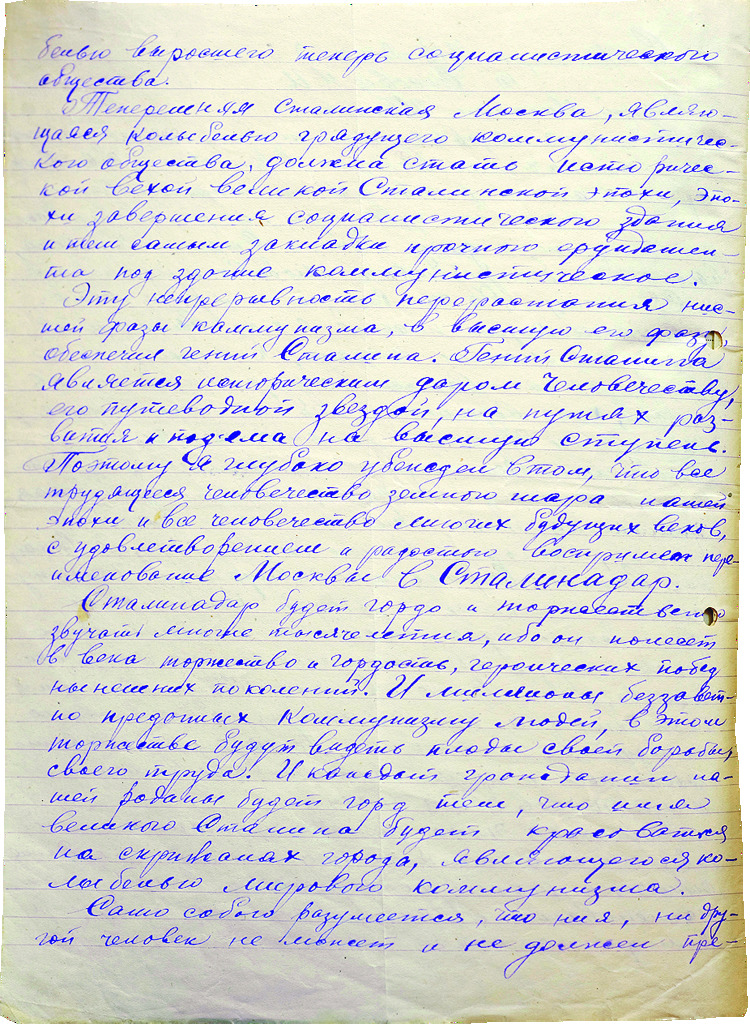 белью выросшего теперь социалистического
общества.
Теперешняя Сталинская Москва, являю-
щаяся колыбелью грядущего коммунистичес-
кого общества, должна стать историчес-
кой вехой великой Сталинской эпохи, эпо-
хи завершения социалистического здания
и тем самым закладки прочного фундамен-
та под здание коммунистическое.
Эту непрерывность перерастания низ-
шей фазы коммунизма, в высшую его фазу,
обеспечил гений Сталина. Гений Сталина
является историческим даром человечеству,
его путеводной звездой, на путях раз-
вития и под'ема на высшую ступень.
Поэтому я глубоко убежден в том, что все
трудящееся человечество земного шара нашей
эпохи и все человечество многих будущих веков,
с удовлетворением и радостью воспримет пере-
именование Москвы в Сталинадар.
Сталинадар будет гордо и торжественно
звучать многие тысячелетия, ибо он понесет
в века торжество и гордость, героических побед
нынешних поколений. И миллионы беззавет-
но преданных Коммунизму людей, в этом
торжестве будут видеть плоды своей борьбы,
своего труда. И каждый гражданин на-
шей родины будет горд тем, что имя
великого Сталина будет красоваться
на скрижалях города, являющегося ко-
лыбелью мирового коммунизма.
Само собою разумеется, что ни я, ни дру-
гой человек не может и не должен пре-